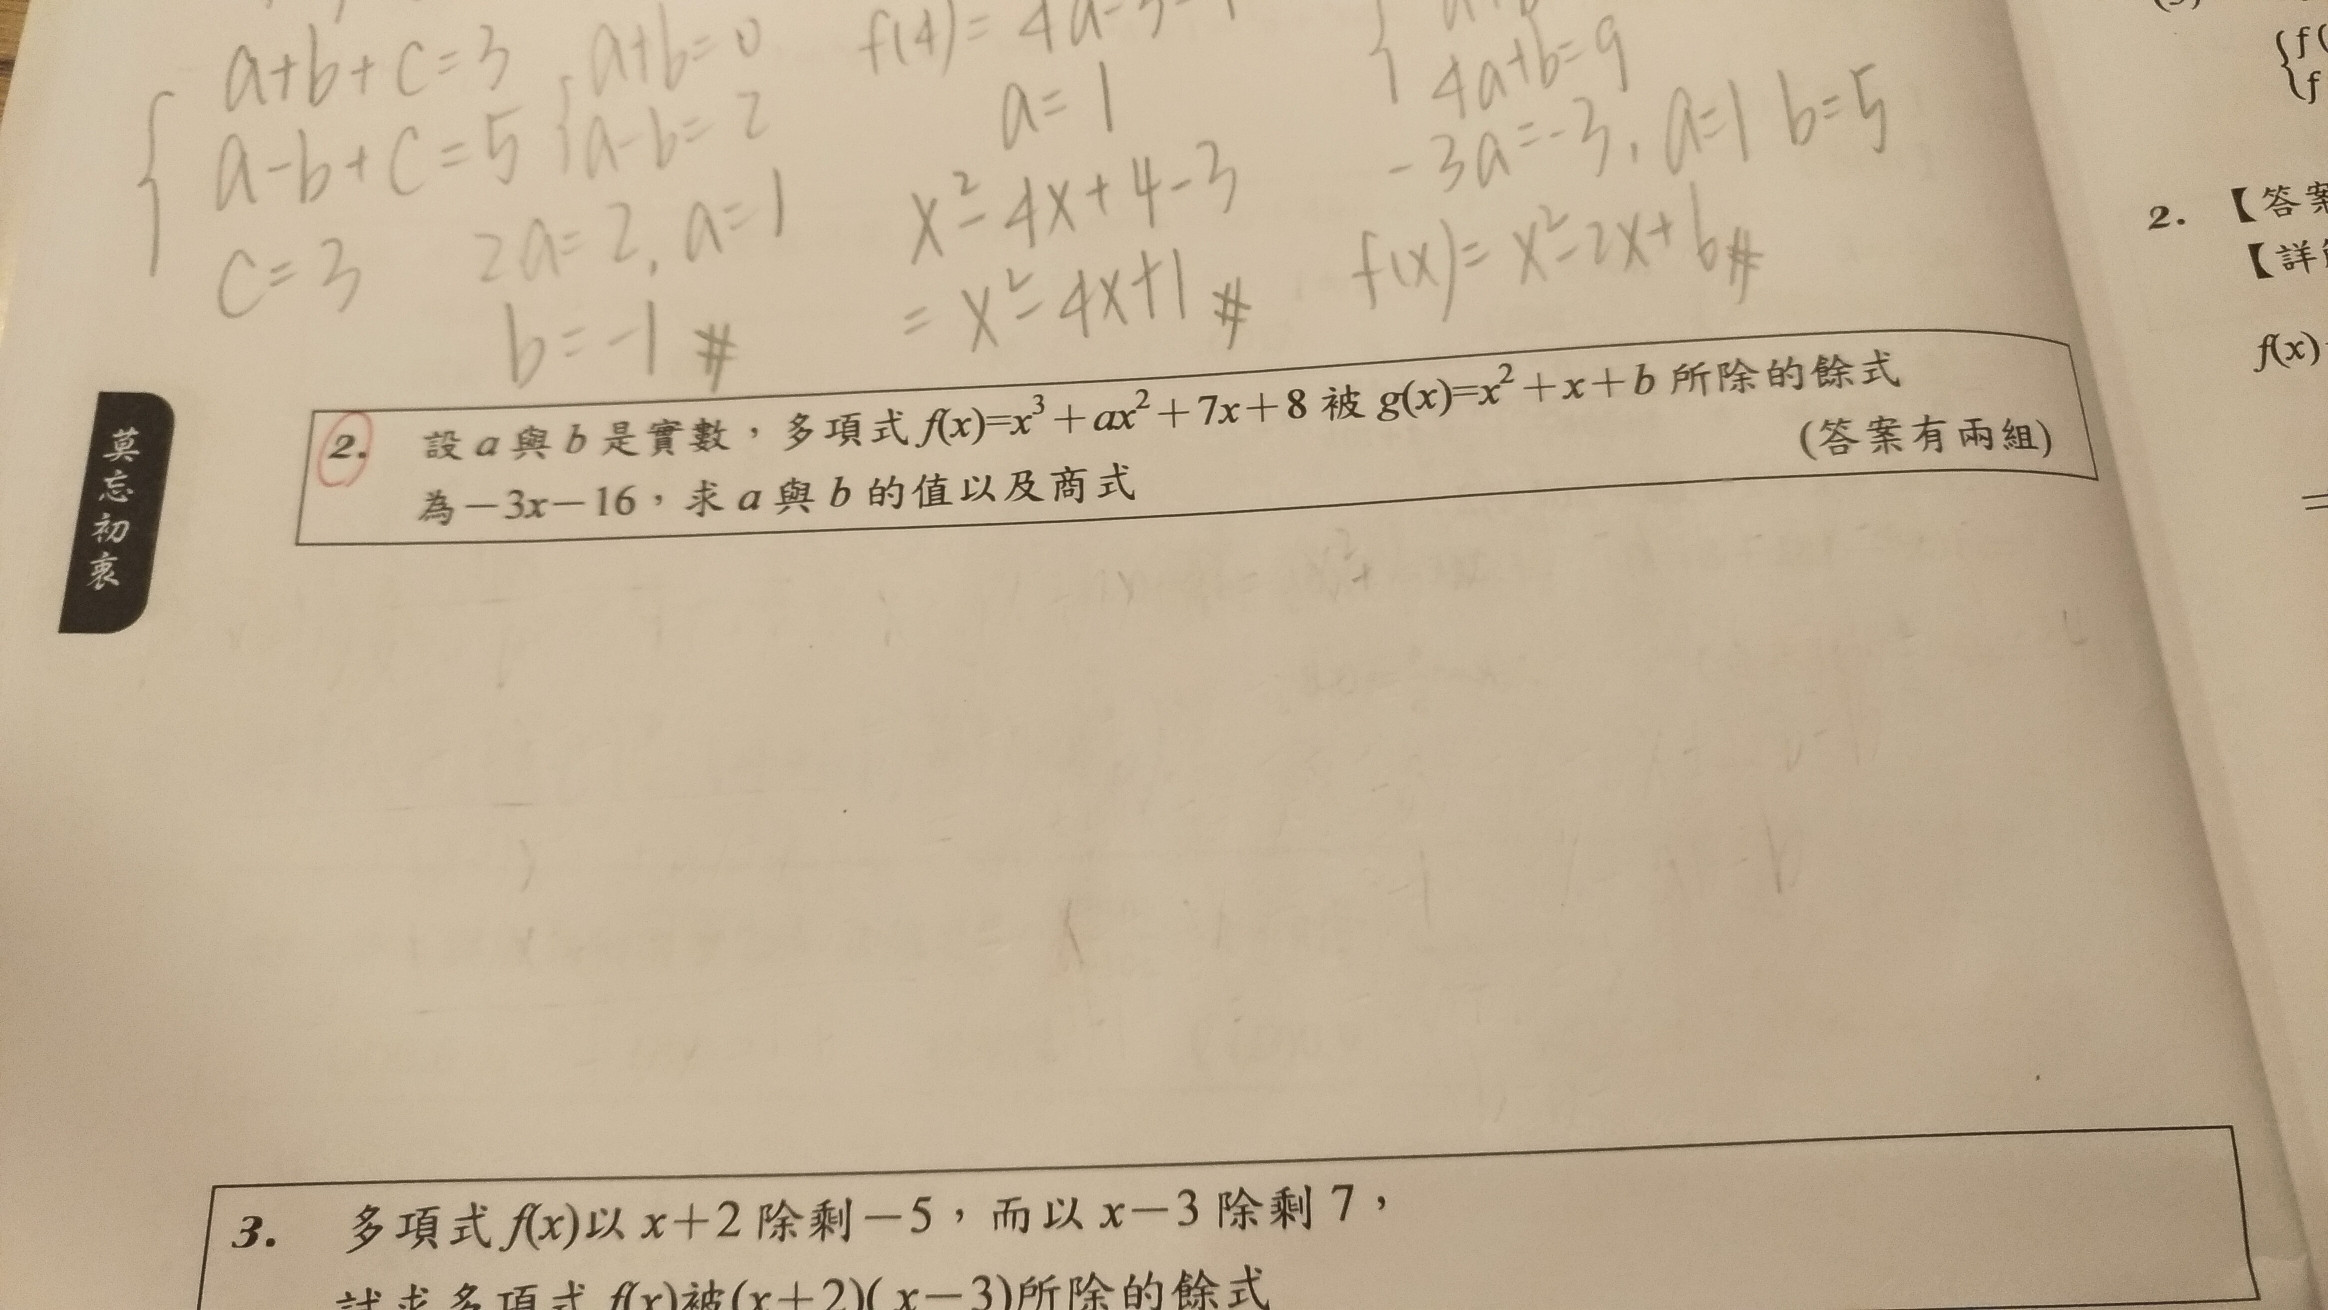 a+b+c=3
a-b+c=5
c=3
a+b=0
a-b=2
2a=2, a=1
b=-1 #
f(4)= 4a-3
a=1
x²-4x+4-3
= x²-4x+1 #
4a+b=9
-3a=-3, a=1 b=5
f(x)= x²-2x+6 #
莫忘初衷
2. 設 a 與 b 是實數，多項式 f(x)=x³+ax²+7x+8 被 g(x)=x²+x+b 所除的餘式
為－3x－16，求 a 與 b 的值以及商式
(答案有兩組)
3. 多項式 f(x)以 x+2 除剩－5，而以 x－3 除剩 7，
試求多項式 f(x)被(x+2)(x－3)所除的餘式
2. 【答案
【詳
f(x)